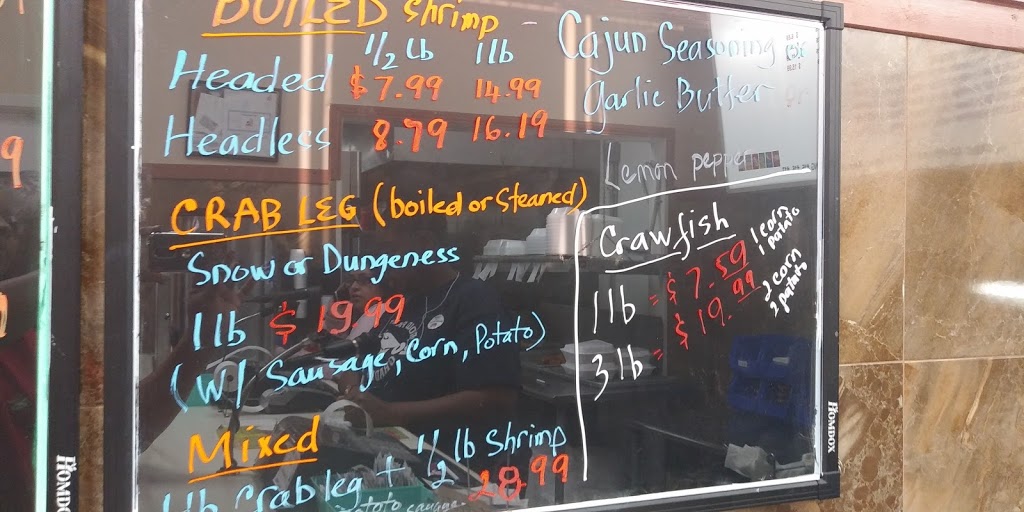 BOILED Shrimp - Cajun Seasoning
1/2 Lb 1lb
Garlic Butter or
Headed $7.99 14.99
Headless 8.79 16.19
Lemon pepper
CRAB LEG (boiled or Steamed)
Snow or Dungeness
1 lb $19.99
(W/ Sausage, Corn, Potato)
Crawfish
1 lb = $7.59 1 corn 1 potato
3 lb = $19.99 2 corn 2 potato
Mixed
1 lb Crab leg + 1/2 lb Shrimp
28.99
potato sausage
HOMDOX
HOMDOX
9